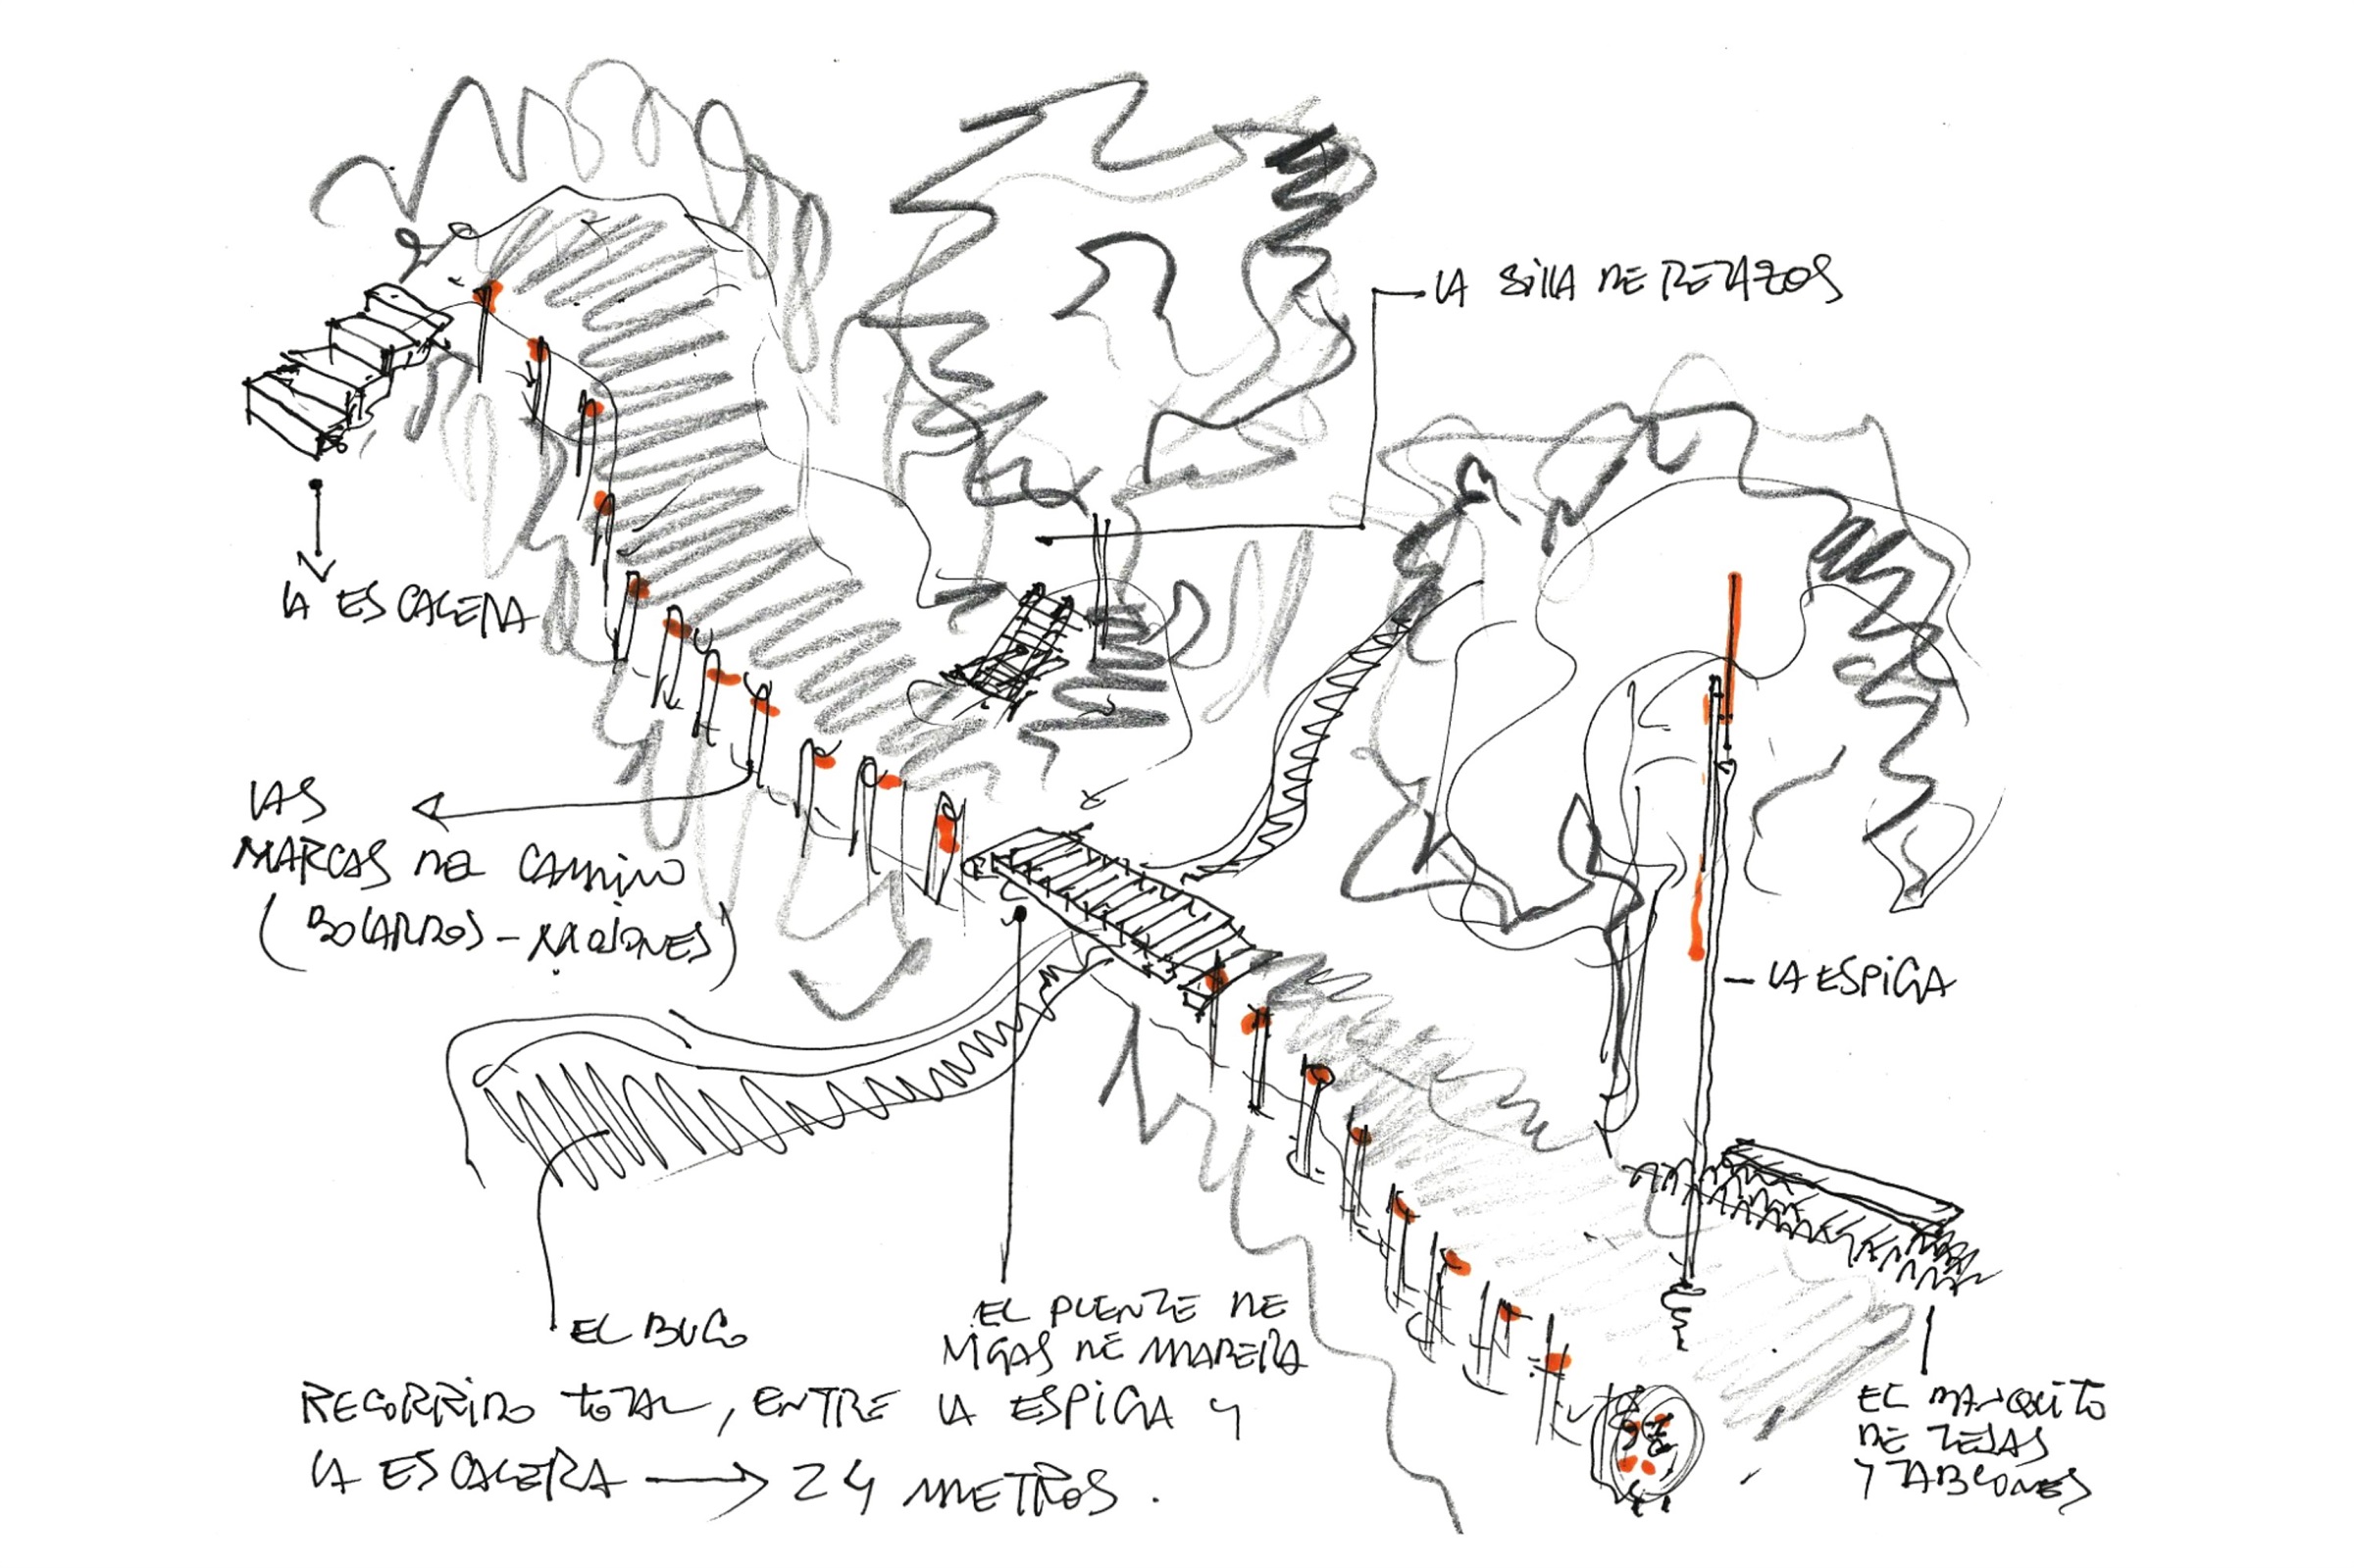 LA SILLA DE RETAZOS
LA ESCALERA
LAS
MARCAS DEL CAMINO
(BOLARDOS - MOJONES)
LA ESPIGA
EL BUCO
EL PUENTE DE
VIGAS DE MADERA
RECORRIDO TOTAL, ENTRE LA ESPIGA Y
LA ESCALERA → 24 METROS.
EL BANQUITO
DE TEJAS
Y TABLONES